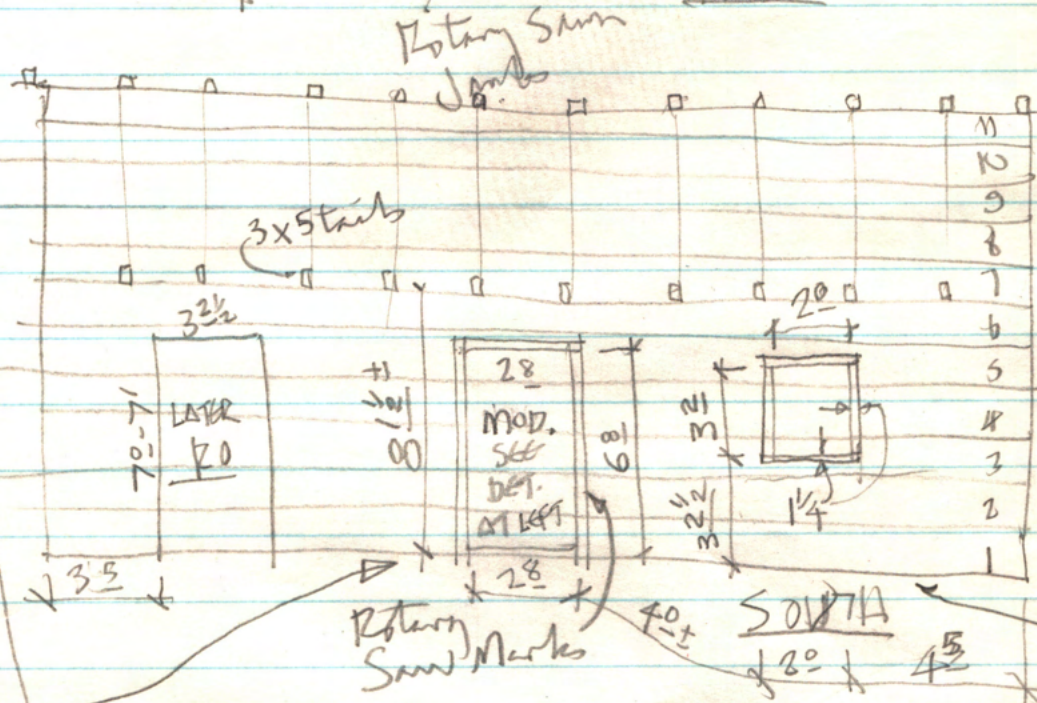 Rotary Sawn
Jambs
11
10
9
8
7
6
5
4
3
2
1
3x5 tails
3 2½
2 0
LATER
RO
7 0-7 1
8 1½ ±
2 8
MOD.
SEE
DET.
AT LEFT
6 8
3 2
3 2½
1¼
3 5
2 8
Rotary
Saw Marks
4 0 ±
SOUTH
2 0
4 5